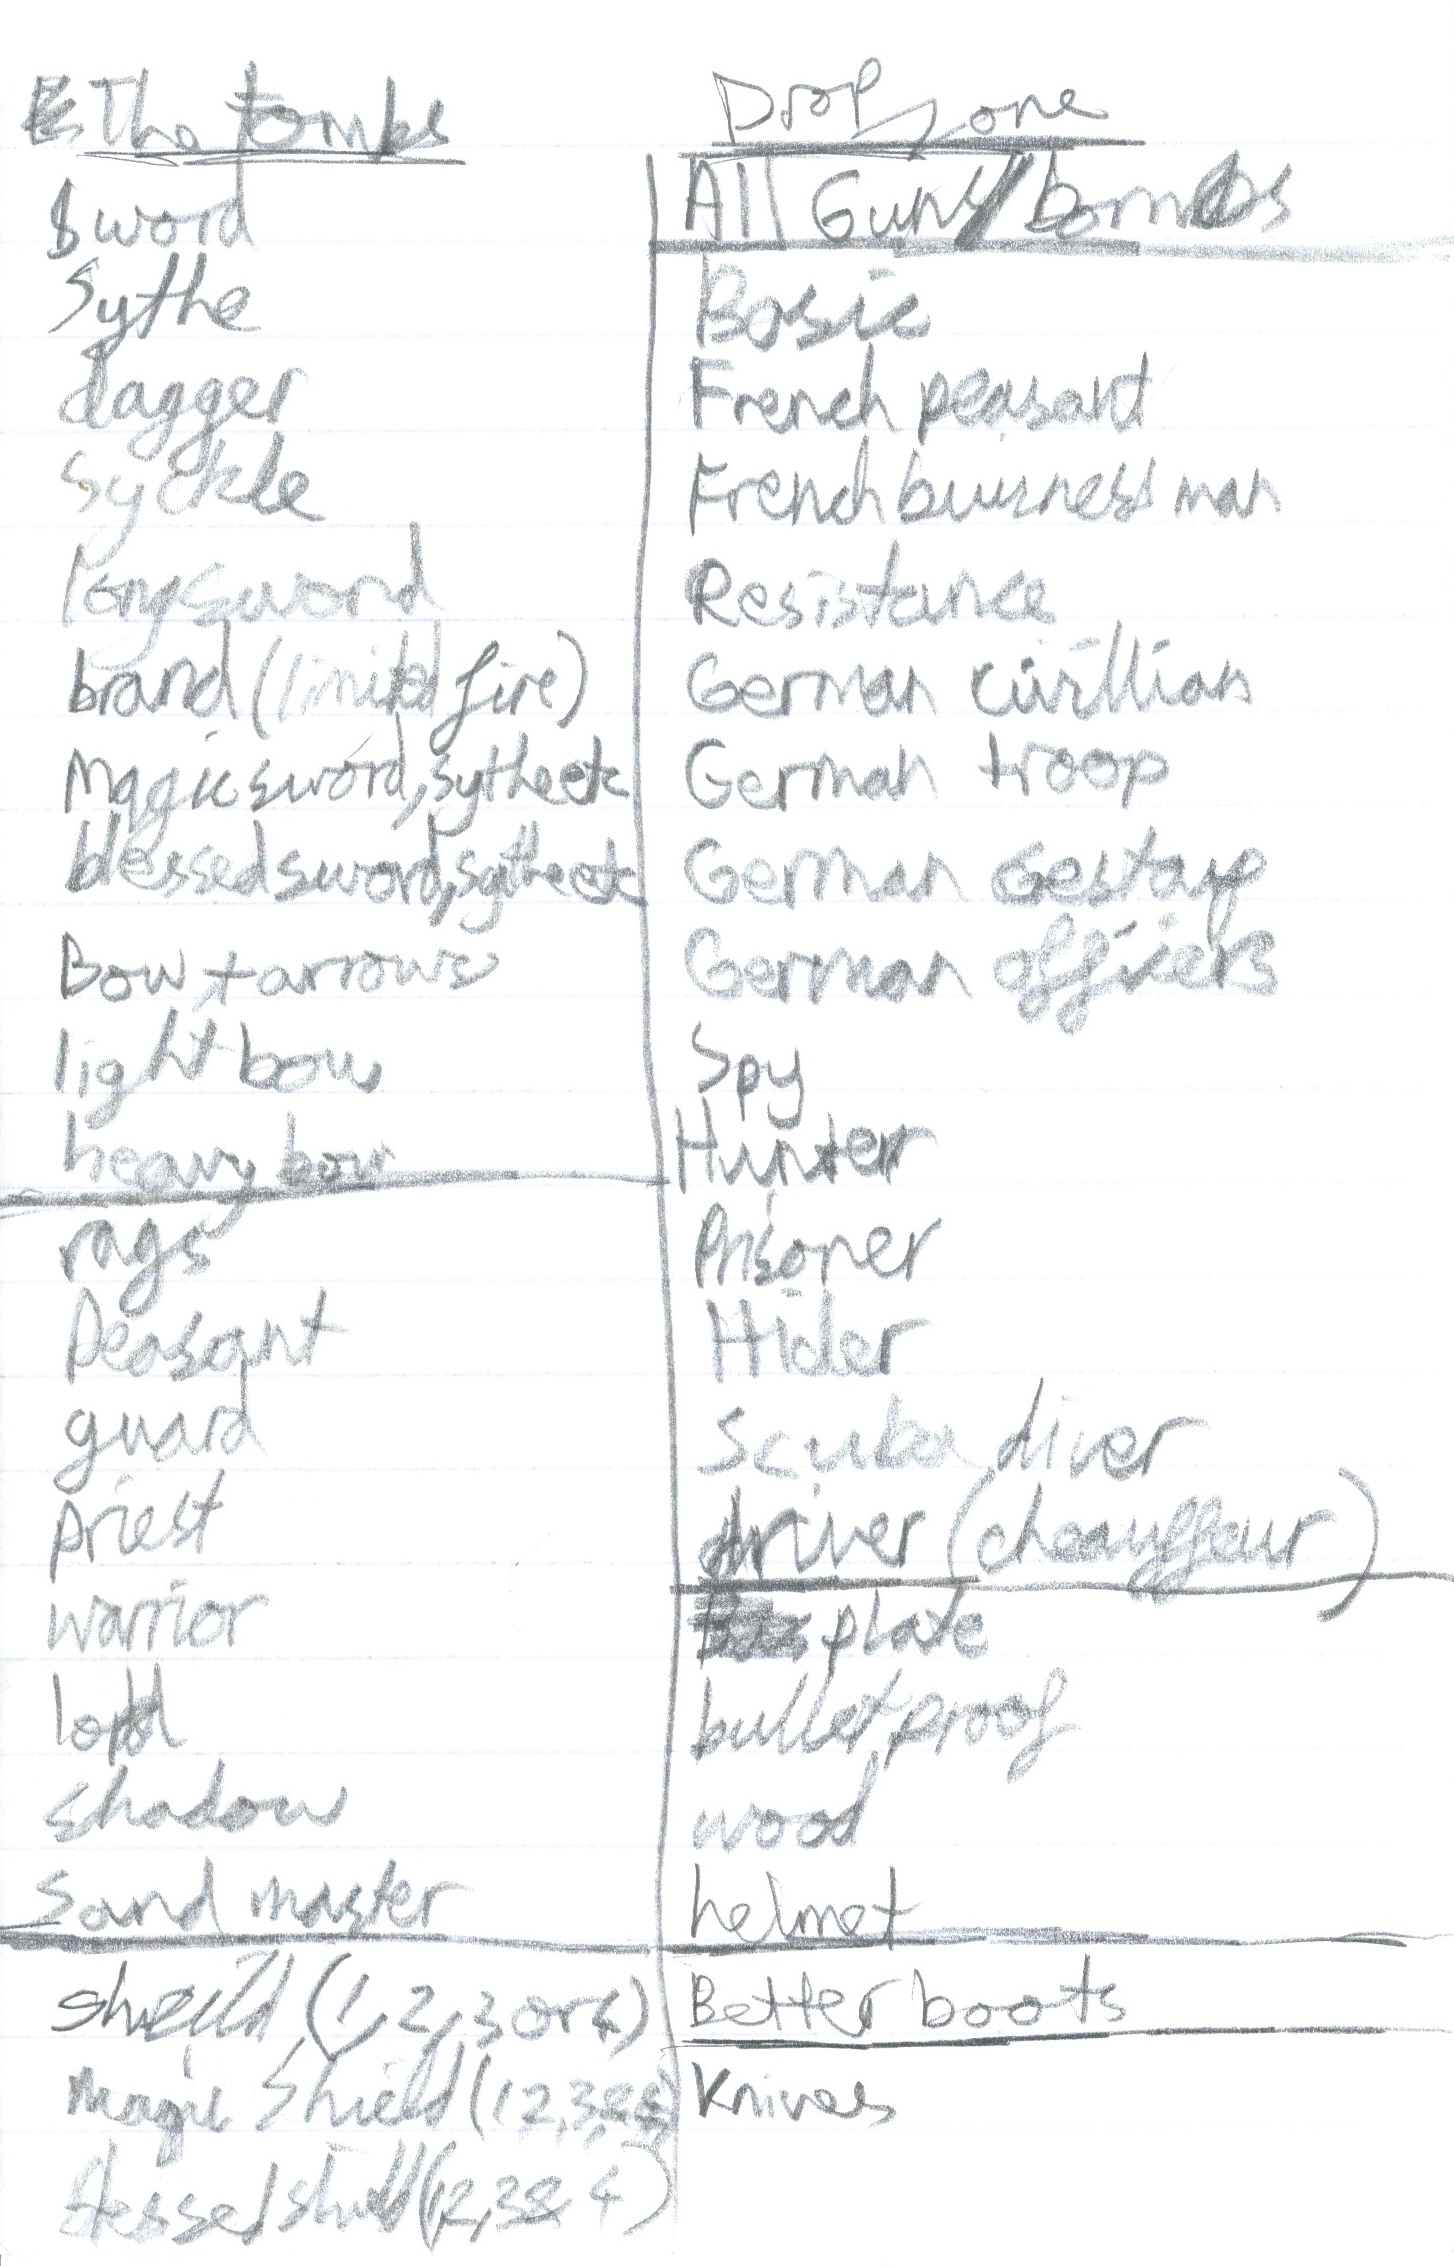 The tombs
Sword
Sythe
dagger
Syckle
longsword
brand (limited fire)
Magic sword, sythe etc
blessed sword, sythe etc
Bow + arrows
light bow
heavy bow
rags
Peasant
guard
priest
warrior
lord
shadow
Sand master
sheild (1, 2, 3 or 4)
Magic Shield (1 2, 3 & 4)
blessed shield (1, 2, 3 & 4)
Drop zone
All Guns/bombs
Basic
French peasant
French buisness man
Resistance
German civillian
German troop
German Gestap
German officers
Spy
Hunter
Prisoner
Hider
Scuba diver
driver (chauffeur)
plate
bulletproof
wood
helmet
Better boots
Knives